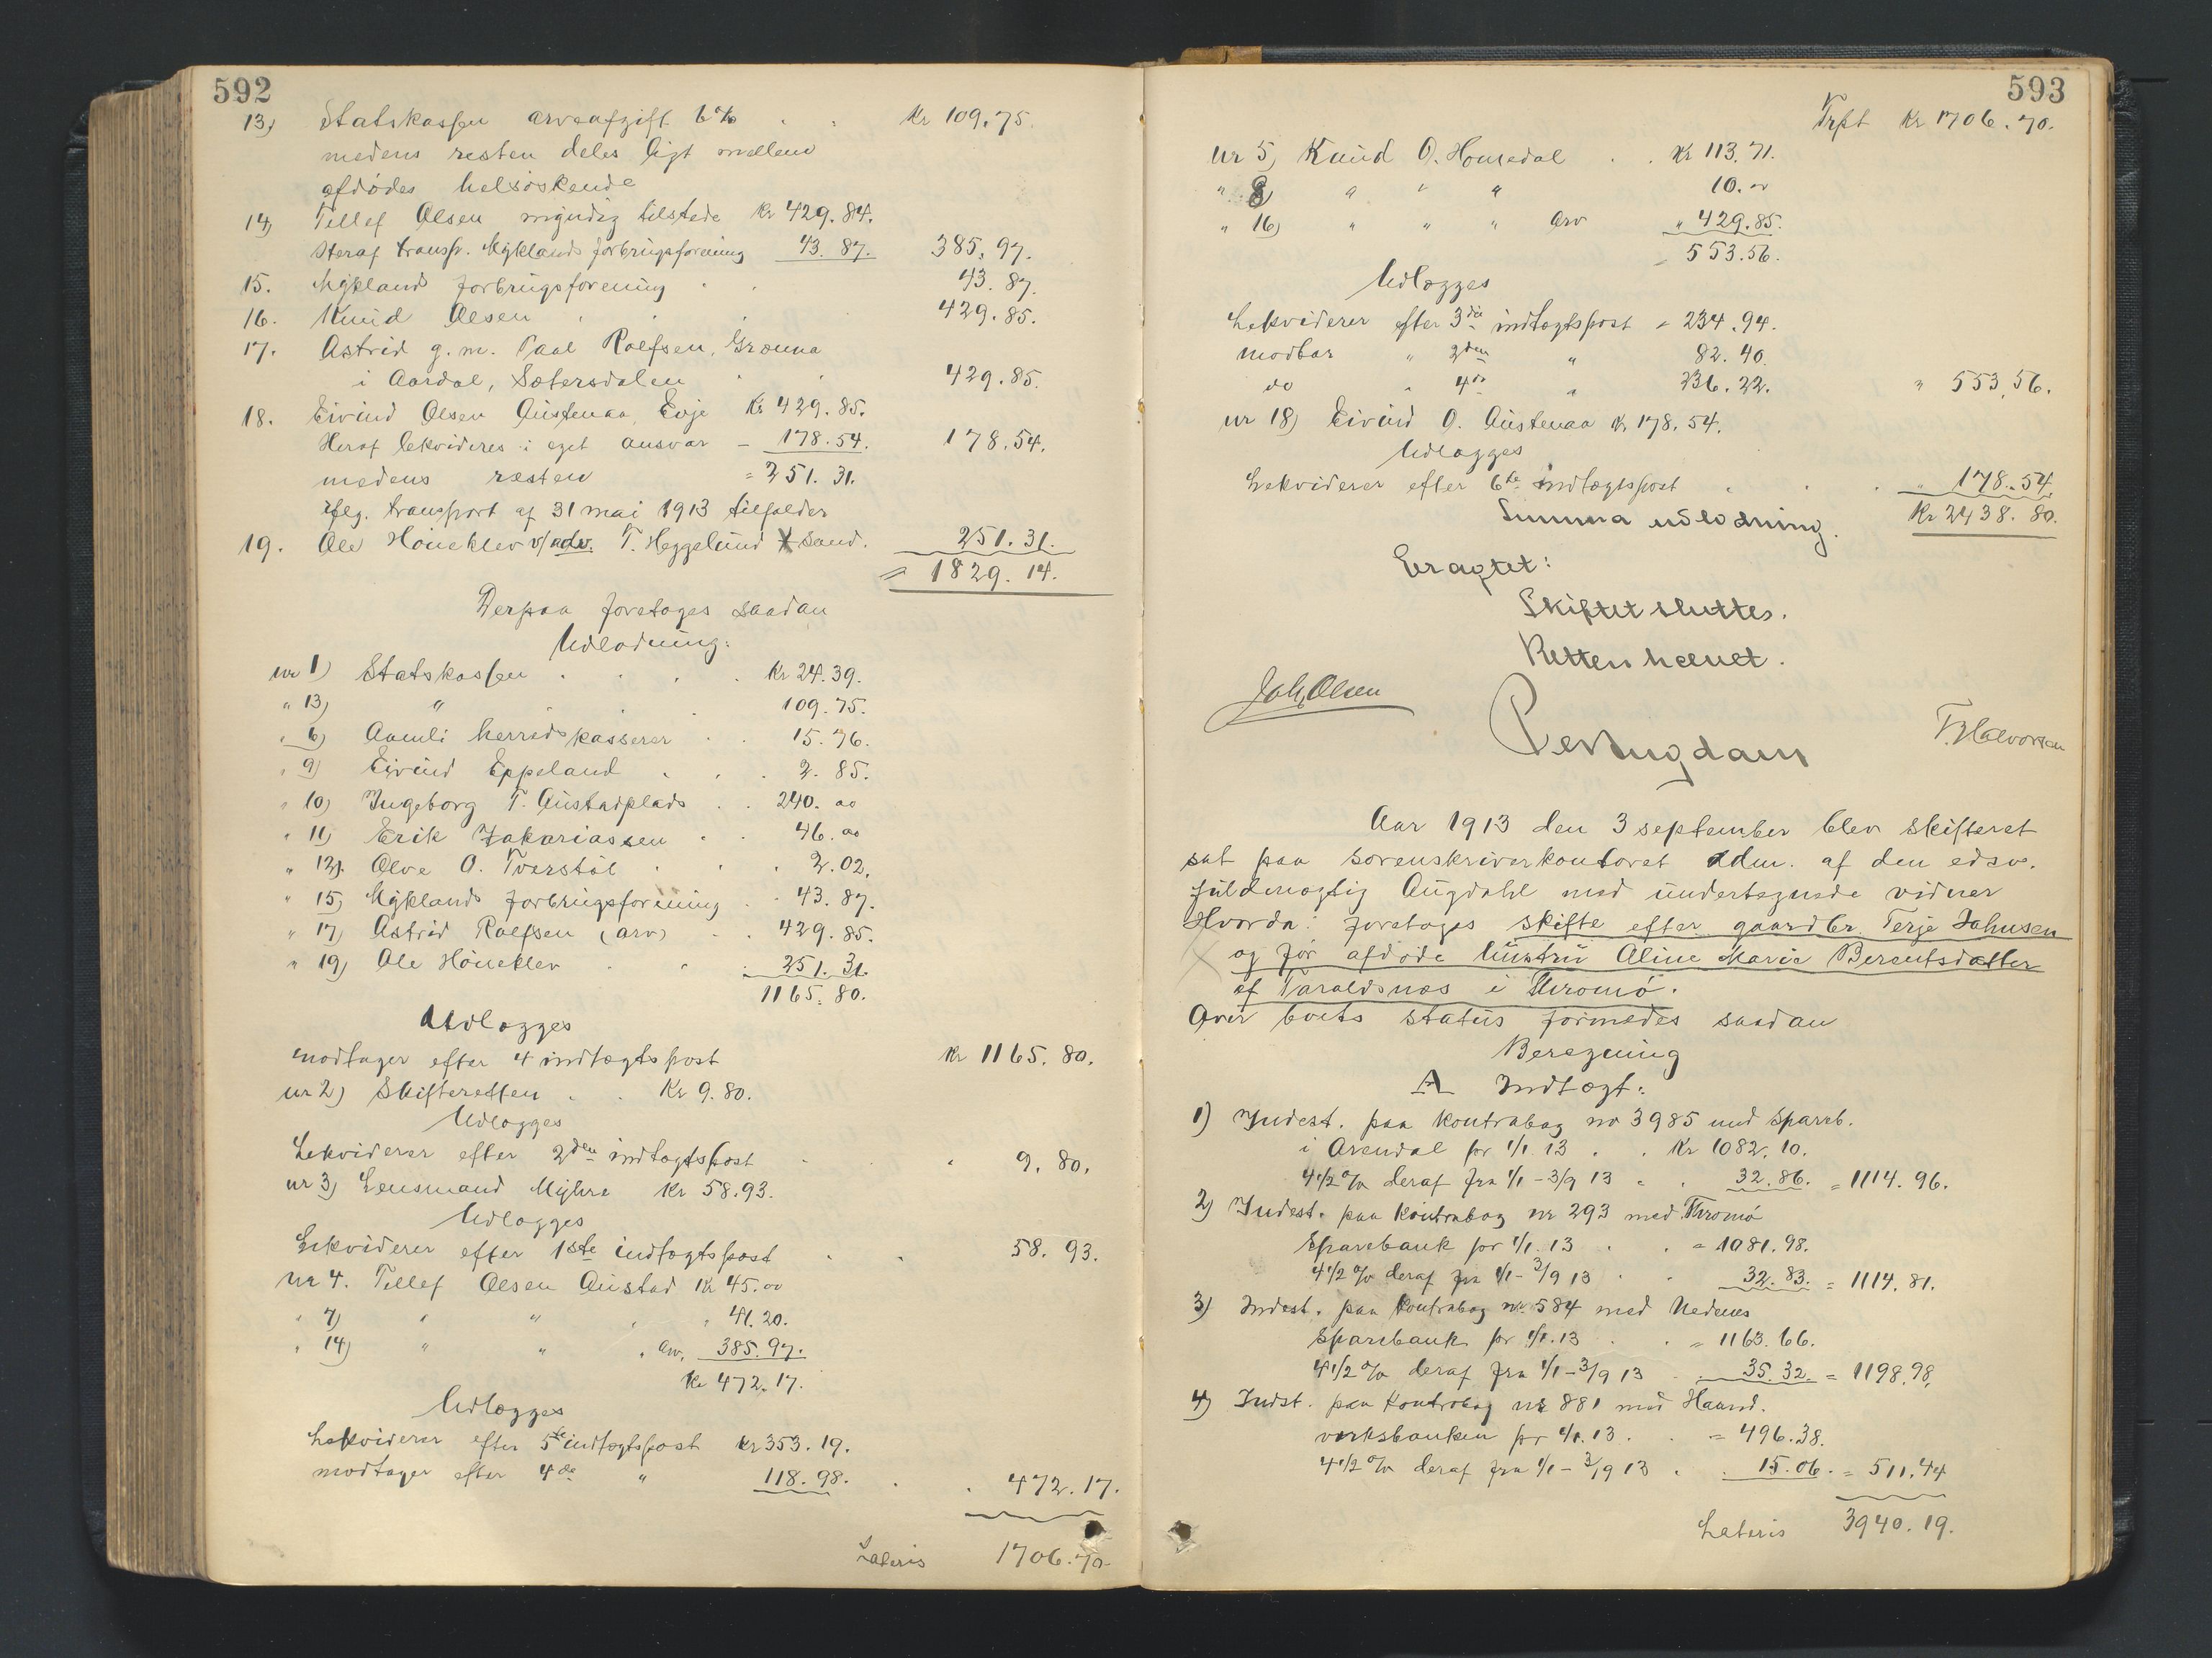 592
13) Statskassen arveafgift 6% . . Kr 109.75.
medens resten deles ligt mellem
afdødes helsøskende
14) Tellef Olsen myndig tilstede Kr 429.84.
Heraf transp. Myklands forbrugsforening 43.87. 385.97.
15. Mykland forbrugsforening . . 43.87.
16. Knud Olsen . . . 429.85.
17. Astrid g.m. Paal Roefsen, Grænna
i Aardal, Sætersdalen . . 429.85.
18. Eivind Olsen Austenaa, Evje Kr 429.85.
Heraf lekvideres i eget ansvar – 178.54. 178.54.
medens resten = 251.31.
iflg. transport af 31 mai 1913 tilfalder
19. Ole Høneklev v/ adv. T. Heggelund + Sand. 251.31.
= 1829.14.
Derpaa foretages saadan
Udlodning:
nr 1) Statskassen . . . . Kr 24.39.
" 13) " . . 109.75.
" 6) Aamli herredskasserer . . 15.76.
" 9) Eivind Eppeland . . . 2.85.
" 10) Ingeborg T. Austadplads . . 240.00
" 11) Erik Zakariassen . . 46.00
" 12). Olve O. Tverstøl . . . 2.02.
" 15) Myklands forbrugsforening . . 43.87.
" 17) Astrid Roefsen (arv) . . 429.85.
" 19) Ole Høneklev . . . 251.31.
1165.80.
Udlægges
modtager efter 4 indtægtspost Kr 1165.80.
nr 2) Skifteretten . . Kr 9.80.
Udlægges
Lekviderer efter 2den indtægtspost . . 9.80.
nr 3) Lensmand Myhre Kr 58.93.
Udlægges
Lekviderer efter 1ste indtægtspost . . 58.93.
nr 4. Tellef Olsen Austad Kr 45.00
" 7) " " " " 41.20.
" 14) " " " arv, 385.97.
Kr 472.17.
Udlægges
Lekviderer efter 5te indtægtspost Kr 353.19.
modtager efter 4de " 118.98. . . 472.17.
Lateris 1706.70.
593
Trpt Kr 1706.70.
nr 5) Knud O. Homedal . . Kr 113.71.
" 8) " " " 10.00
" 16) " " " arv " 429.85.
553.56.
Udlægges
Lekviderer efter 3die indtægtspost " 234.94.
modtar " 2den " 82.40.
do " 4de " 236.22. " 553.56.
nr 18) Eivind O. Austenaa Kr 178.54.
Udlægges
Lekviderer efter 6te indtægtspost . . . " 178.54.
Summa udlodning. Kr 2438.80.
Eragtet:
Skiftet sluttes.
Retten hævet.
Joh. Olsen
Per Augdam
T. Halvorsen
Aar 1913 den 3 september blev skifteret
sat paa sorenskriverkontoret adm. af den edsv.
fuldmægtig Augdahl med undertegnede vidner
Hvorda: foretages skifte efter gaardbr. Terje Johnsen
og før afdøde hustru Aline Marie Berentsdatter
af Taraldsnæs i Thromø.
Over boets status formedes saadan
Beregning
A Indtægt:
1) Indest. paa kontrabog no 3985 med spareb.
i Arendal pr 1/1.13 . . Kr 1082.10.
4 1/2 % deraf fra 1/1 – 3/9 13 " . 32.86. = 1114.96.
2) Indest. paa kontrabog nr 293 med Thromø
Sparebank pr 1/1.13 . . = 1081.98.
4 1/2 % deraf fra 1/1 – 3/9 13 . . 32.83. = 1114.81.
3) Indest. paa kontrabog nr 584 med Nedenes
Sparebank pr 1/1.13 . . = 1163.66.
4 1/2 % deraf fra 1/1 – 3/9 13 . . 35.32. = 1198.98.
4) Indst. paa kontrabog nr 881 med Haand.
verksbanken pr 1/1.13 . . = 496.38.
4 1/2 % deraf fra 1/1 – 3/9 13 . . 15.06. = 511.44
Lateris 3940.19.